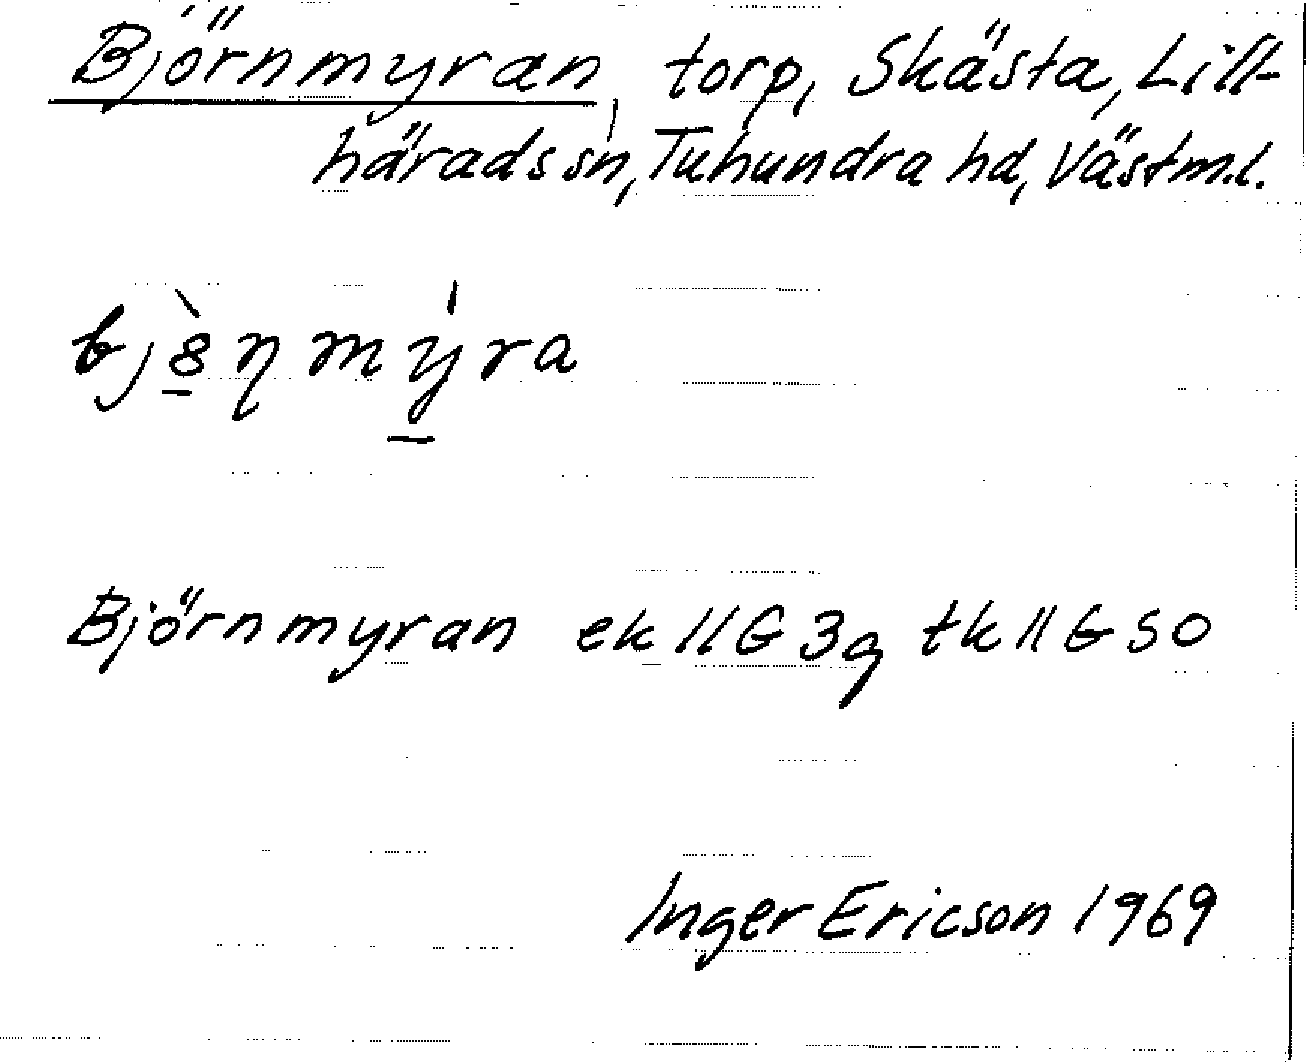 Björnmyran, torp, Skästa, Lill-
härads sn, Tuhundra hd, Västm.l.
bj8̲̀ɳmý̲ra
Björnmyran ek 11G3g tk 11G SO
Inger Ericson 1969